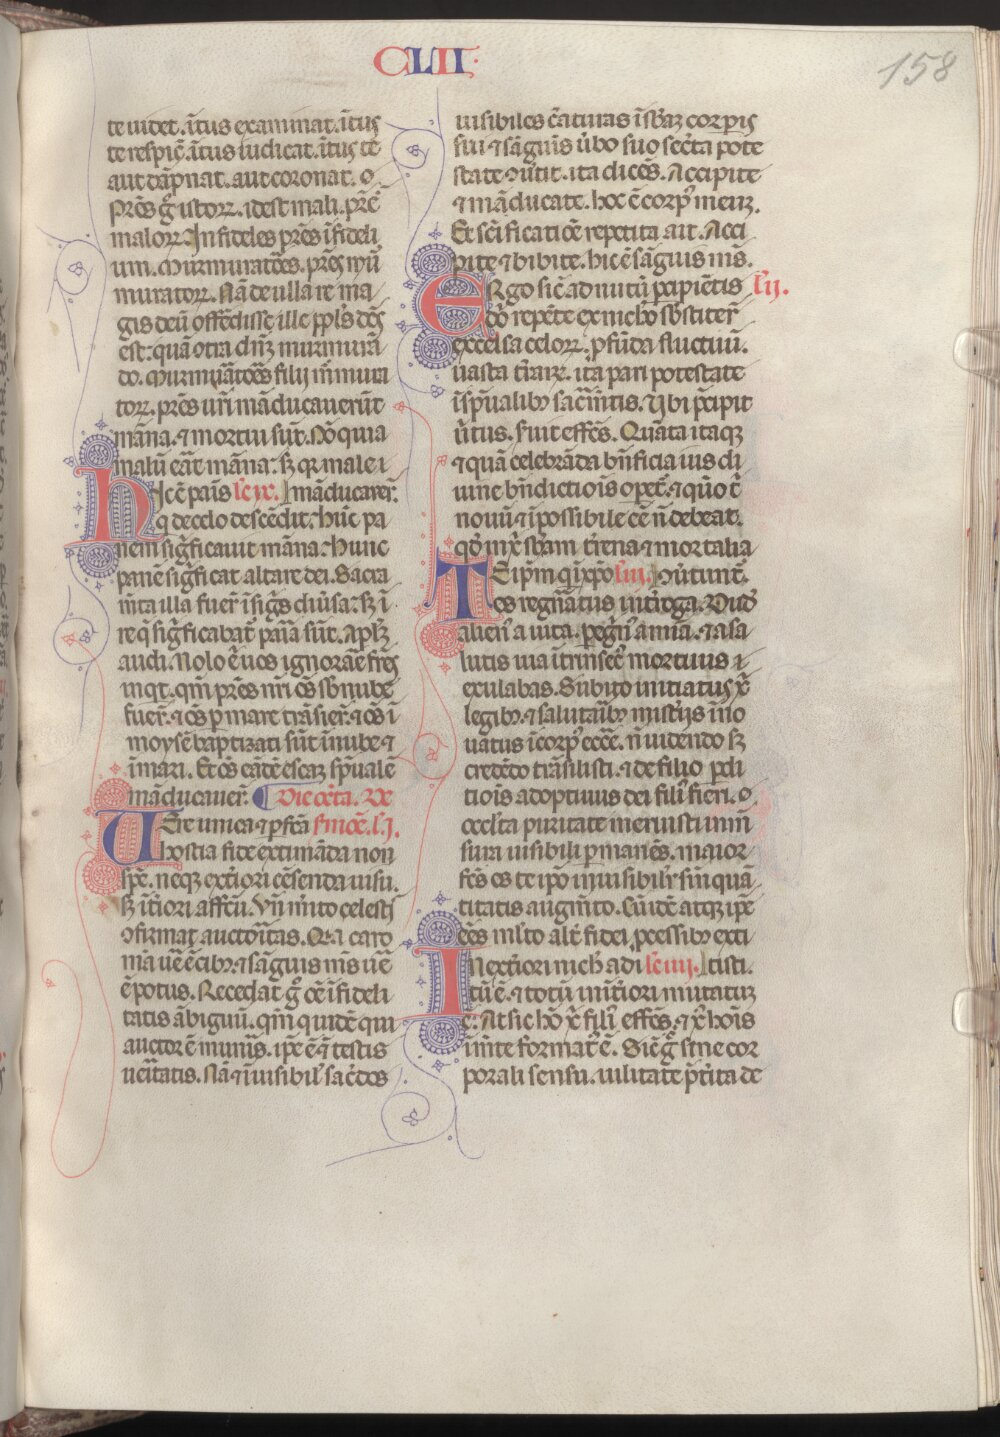 CLII
158
te uidet. ĩtus examinat. ĩtus
te respic̃. ĩtus iudicat. ĩtus te
aut dãpnat. aut coronat. o
Pr̃es g̃ istoꝝ. idest mali. pr̃e
maloꝝ. Infideles pr̃es ĩfideli
um. Murmuratões. pr̃es mur̃
muratoꝝ. Nã de ulla re ma
gis deũ offẽdisse ille ppl̃s dc̃s
est: quã ↄtra dñz murmurã
do. Murmuratões filij m̃mura
toꝝ. pr̃es ur̃i mãducauerũt
mãna. ⁊ mortui sũt. Nõ quia
malũ eãt mãna: sꝫ qꝛ male i
Ic ẽ pañis lcix. mãducauer̃.
q̃ de celo descẽdit: hũc pa
nem sig̃ficauit mãna: hunc
panẽ sig̃ficat altare dei. Sacra
m̃ta illa fuer̃ ĩ sig̃s diũsa: sꝫ ĩ
re q̃ sig̃ficabãt paria sũt. Apl̃z
audi. Nolo ẽ uos ignorãe fr̃es
inqt. qm̃ pr̃es nr̃i õs sb̃ nube
fuer̃. ⁊ õs p mare trãsier̃. ⁊ õs ĩ
moyse baptizati sũt ĩ nube ⁊
ĩ mari. Et õs eãdẽ escaz sp̃ualẽ
mãducauer̃. Die c̃cta. De
Ere unica ⁊ pfc̃a ſm̃oẽ. l.j.
hostia fide extimãda non
spẽ. neqꝫ ext̃iori cẽsenda uisu.
sꝫ ĩt̃iori affc̃u. Vñ m̃ito celestis
ↄfirmat auctor̃itas. Qꝛ a caro
mã uẽ ẽ cibꝰ. ⁊ sãguis ms̃ uẽ
ẽ potus. Recedat g̃ oẽ ĩfideli
tatis ãbiguũ. qm̃ quidẽ qui
auctor ẽ muñis. ipẽ ẽ ⁊ testis
uer̃itatis. Nã ⁊ ĩuisibil̃ sac̃dos
uisibiles c̃aturas ĩ sb̃az corp̃is
sui ⁊ sãguĩs ũbo suo secr̃ta pote
state ↄũtit. ita dices̃. Accipite
⁊ mãducate. hoc ẽ corpꝰ meuꝫ.
Et sc̃ificatiõe repetita ait. Acci
pite ⁊ bibite. hic ẽ sãguis ms̃.
Rgo sic̃ ad nutũ p̃cipiẽtis l'ij.
dõ repẽte ex nichõ sb̃stiter̃
excelsa celoꝝ. pfũda fluctuũ.
ũasta t̃rarꝫ. ita pari potestate
ĩ sp̃ualibꝰ sac̃m̃tis. ubi p̃cipit
ũtus. seruit effc̃s. Quãta itaqꝫ
⁊ quã celebrãda bñficia uis di
uine bñdictiõis opet̃. ⁊ quõ t̃
nouũ ⁊ ĩpossibile eẽ ñ debeat.
qđ ĩ xr̃i sb̃am t̃rena ⁊ mortalia
E ip̃m q ĩ xp̃o liij. ↄũtunt̃.
es regñatus int̃roga. Dudũ
alien̾ a uita. pegr̾ñ a mĩa. ⁊ a sa
lutis uia ĩtrinsecꝰ mortuus
exulabas. Subito initiatus xr̃i
legibꝰ. ⁊ salutaribꝰ mist̃ijs ĩno
uatus ĩ corpꝰ ecc̃e. ñ uidendo sꝫ
credẽdo trãsilisti. ⁊ de filio pdi
tiõis adoptiuus dei fili̾ fieri. o
occl̃ta puritate meruisti in m̃
sura uisibili pmanẽs. maior
fc̃s es te ipõ ĩuisibilir̃ sin̾ quã
titatis augm̃to. Cũ idẽ atqꝫ ipẽ
eẽs ml̃to alt̾ fidei p̃cessibꝰ exti
N ext̃iori nich̃ adi lc̃iiij. tisti.
tũ ẽ. ⁊ totũ ĩ int̃iori mutatuꝫ
ẽ. At sic hõ xr̃i fili̾ effc̃s. ⁊ xr̃ hoĩs
ĩ m̃te format̾ ẽ. Sic̃ g̃ sine cor
porali sensu. uilitate p̃t̃ita de